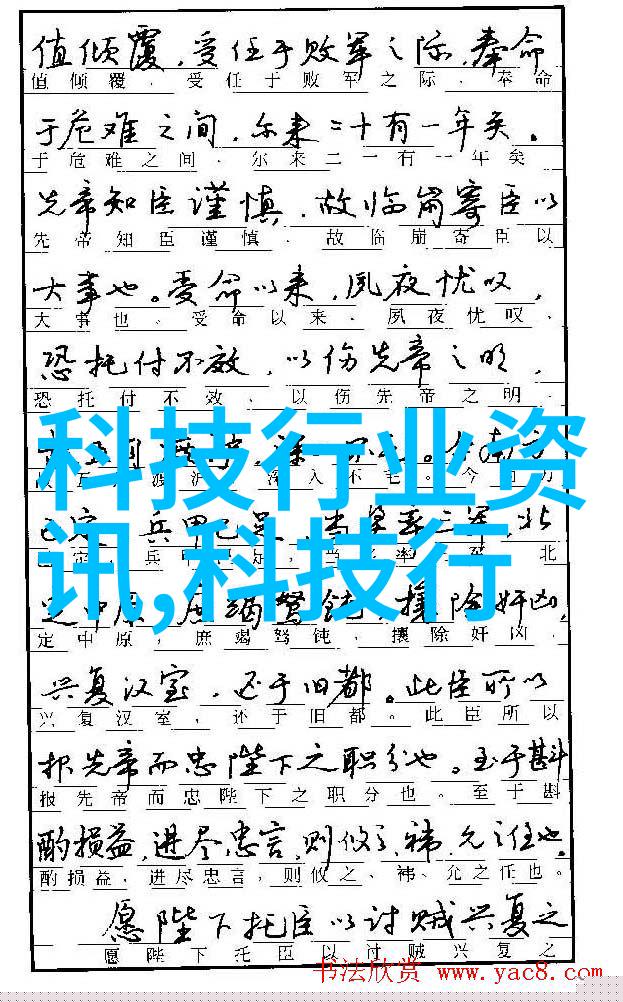 值倾覆，受任于败军之际，奉命
值倾覆．受任于败军之际．奉命
于危难之间，尔来二十有一年矣。
于危难之间．尔来二一有一年矣
先帝知臣谨慎，故临崩寄臣以
先帝知臣谨慎．故临崩寄臣以
大事也。受命以来，夙夜忧叹，
大事也．受命以来．夙夜忧叹．
恐托付不效，以伤先帝之明，
恐托付不效．以伤先帝之明．
科技行业资
讯,科技行
不 。今南方
渡 深入不毛。今 方
已定 兵甲已足，当 率三军，北
定 兵 足，当 率 北
定中原，庶竭驽钝，攘除奸凶，
定中原，庶竭驽钝，攘除奸凶，
兴复汉室，还于旧都。此臣所以
兴复汉室，还于旧都。此臣所以
报先帝而忠陛下之职分也。至于斟
报先帝而忠陛下之职分也。至于斟
酌损益，进尽忠言，则攸之、祎、允之任也。
酌损益．进尽忠言，则攸之、祎、允之任也。
愿陛下托臣以讨贼兴复之
愿陛下托臣以讨贼兴复之
书法欣赏 www.yac8.com